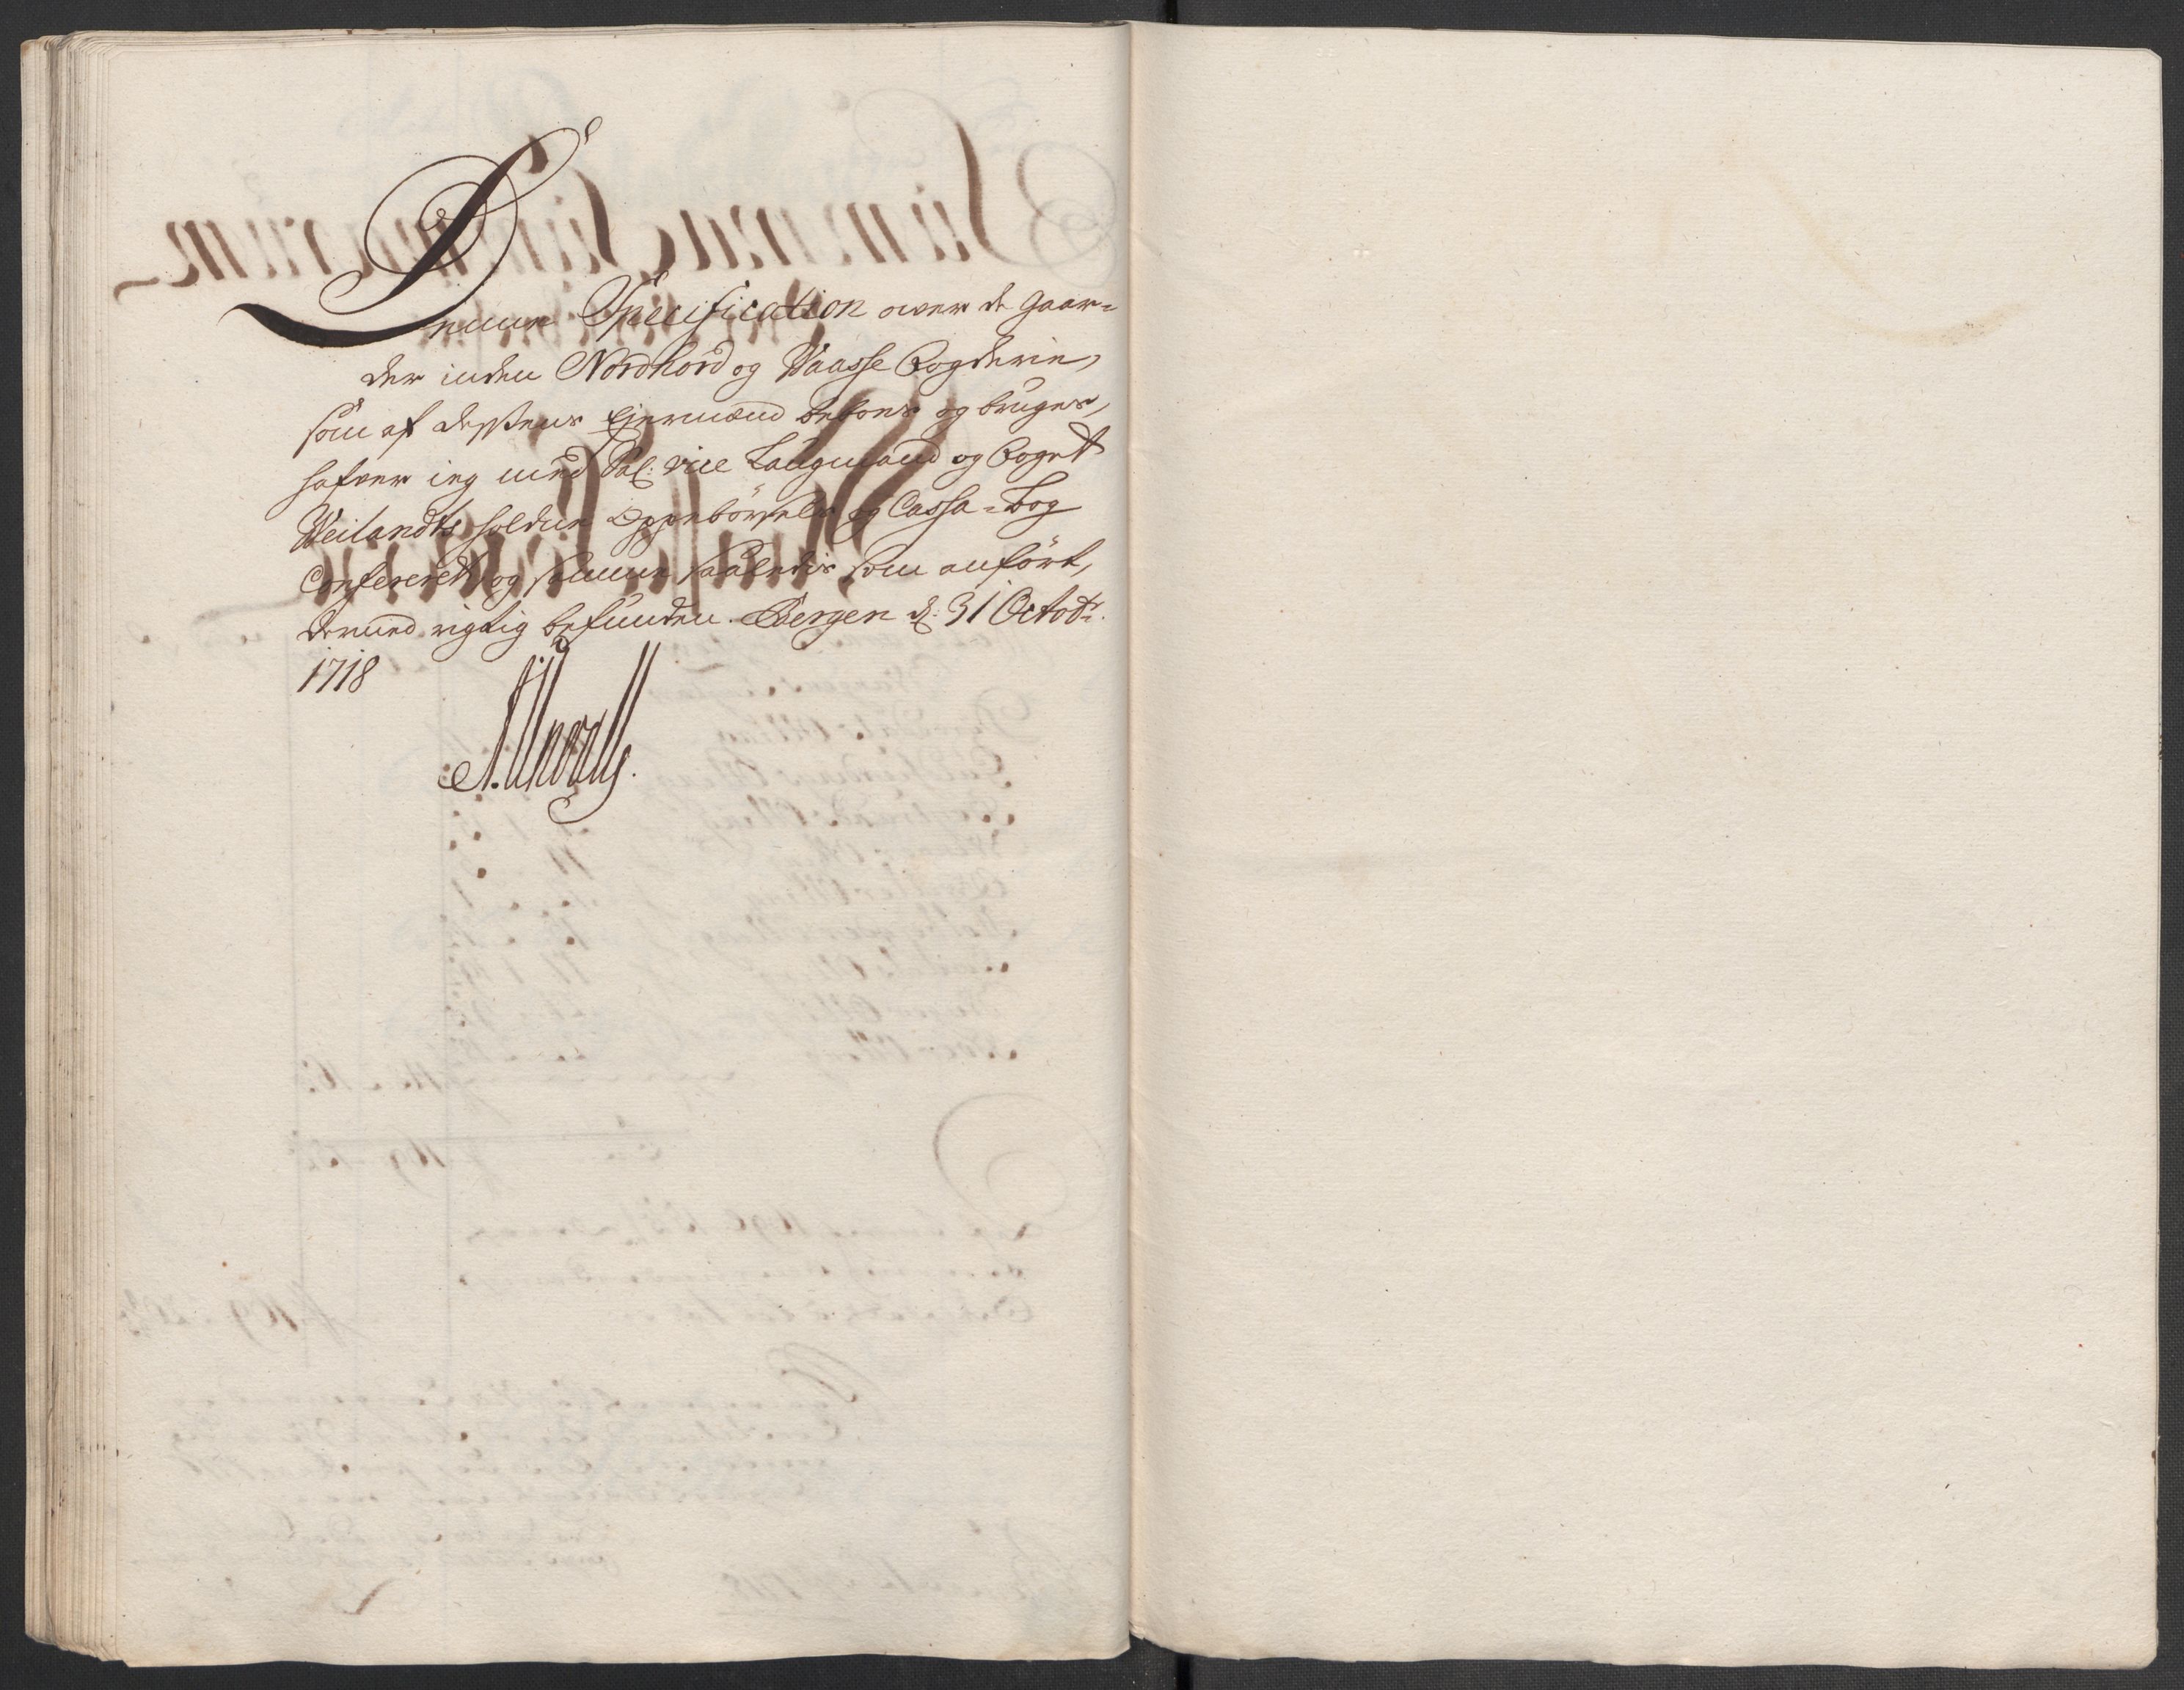 Denne Specification over de gaar-
der inden Nordhord og Waasse Fogderie,
som af dessens Ejermænd beboes og bruges,
hafver ieg med Sal: Vice Laugmand og Fogett
Weilandts holdne Oppebörsels og Cassa-Bog
Confereret, og samme saaledis som anfört,
dermed rigtig befunden. Bergen d: 31 Octobr:
1718